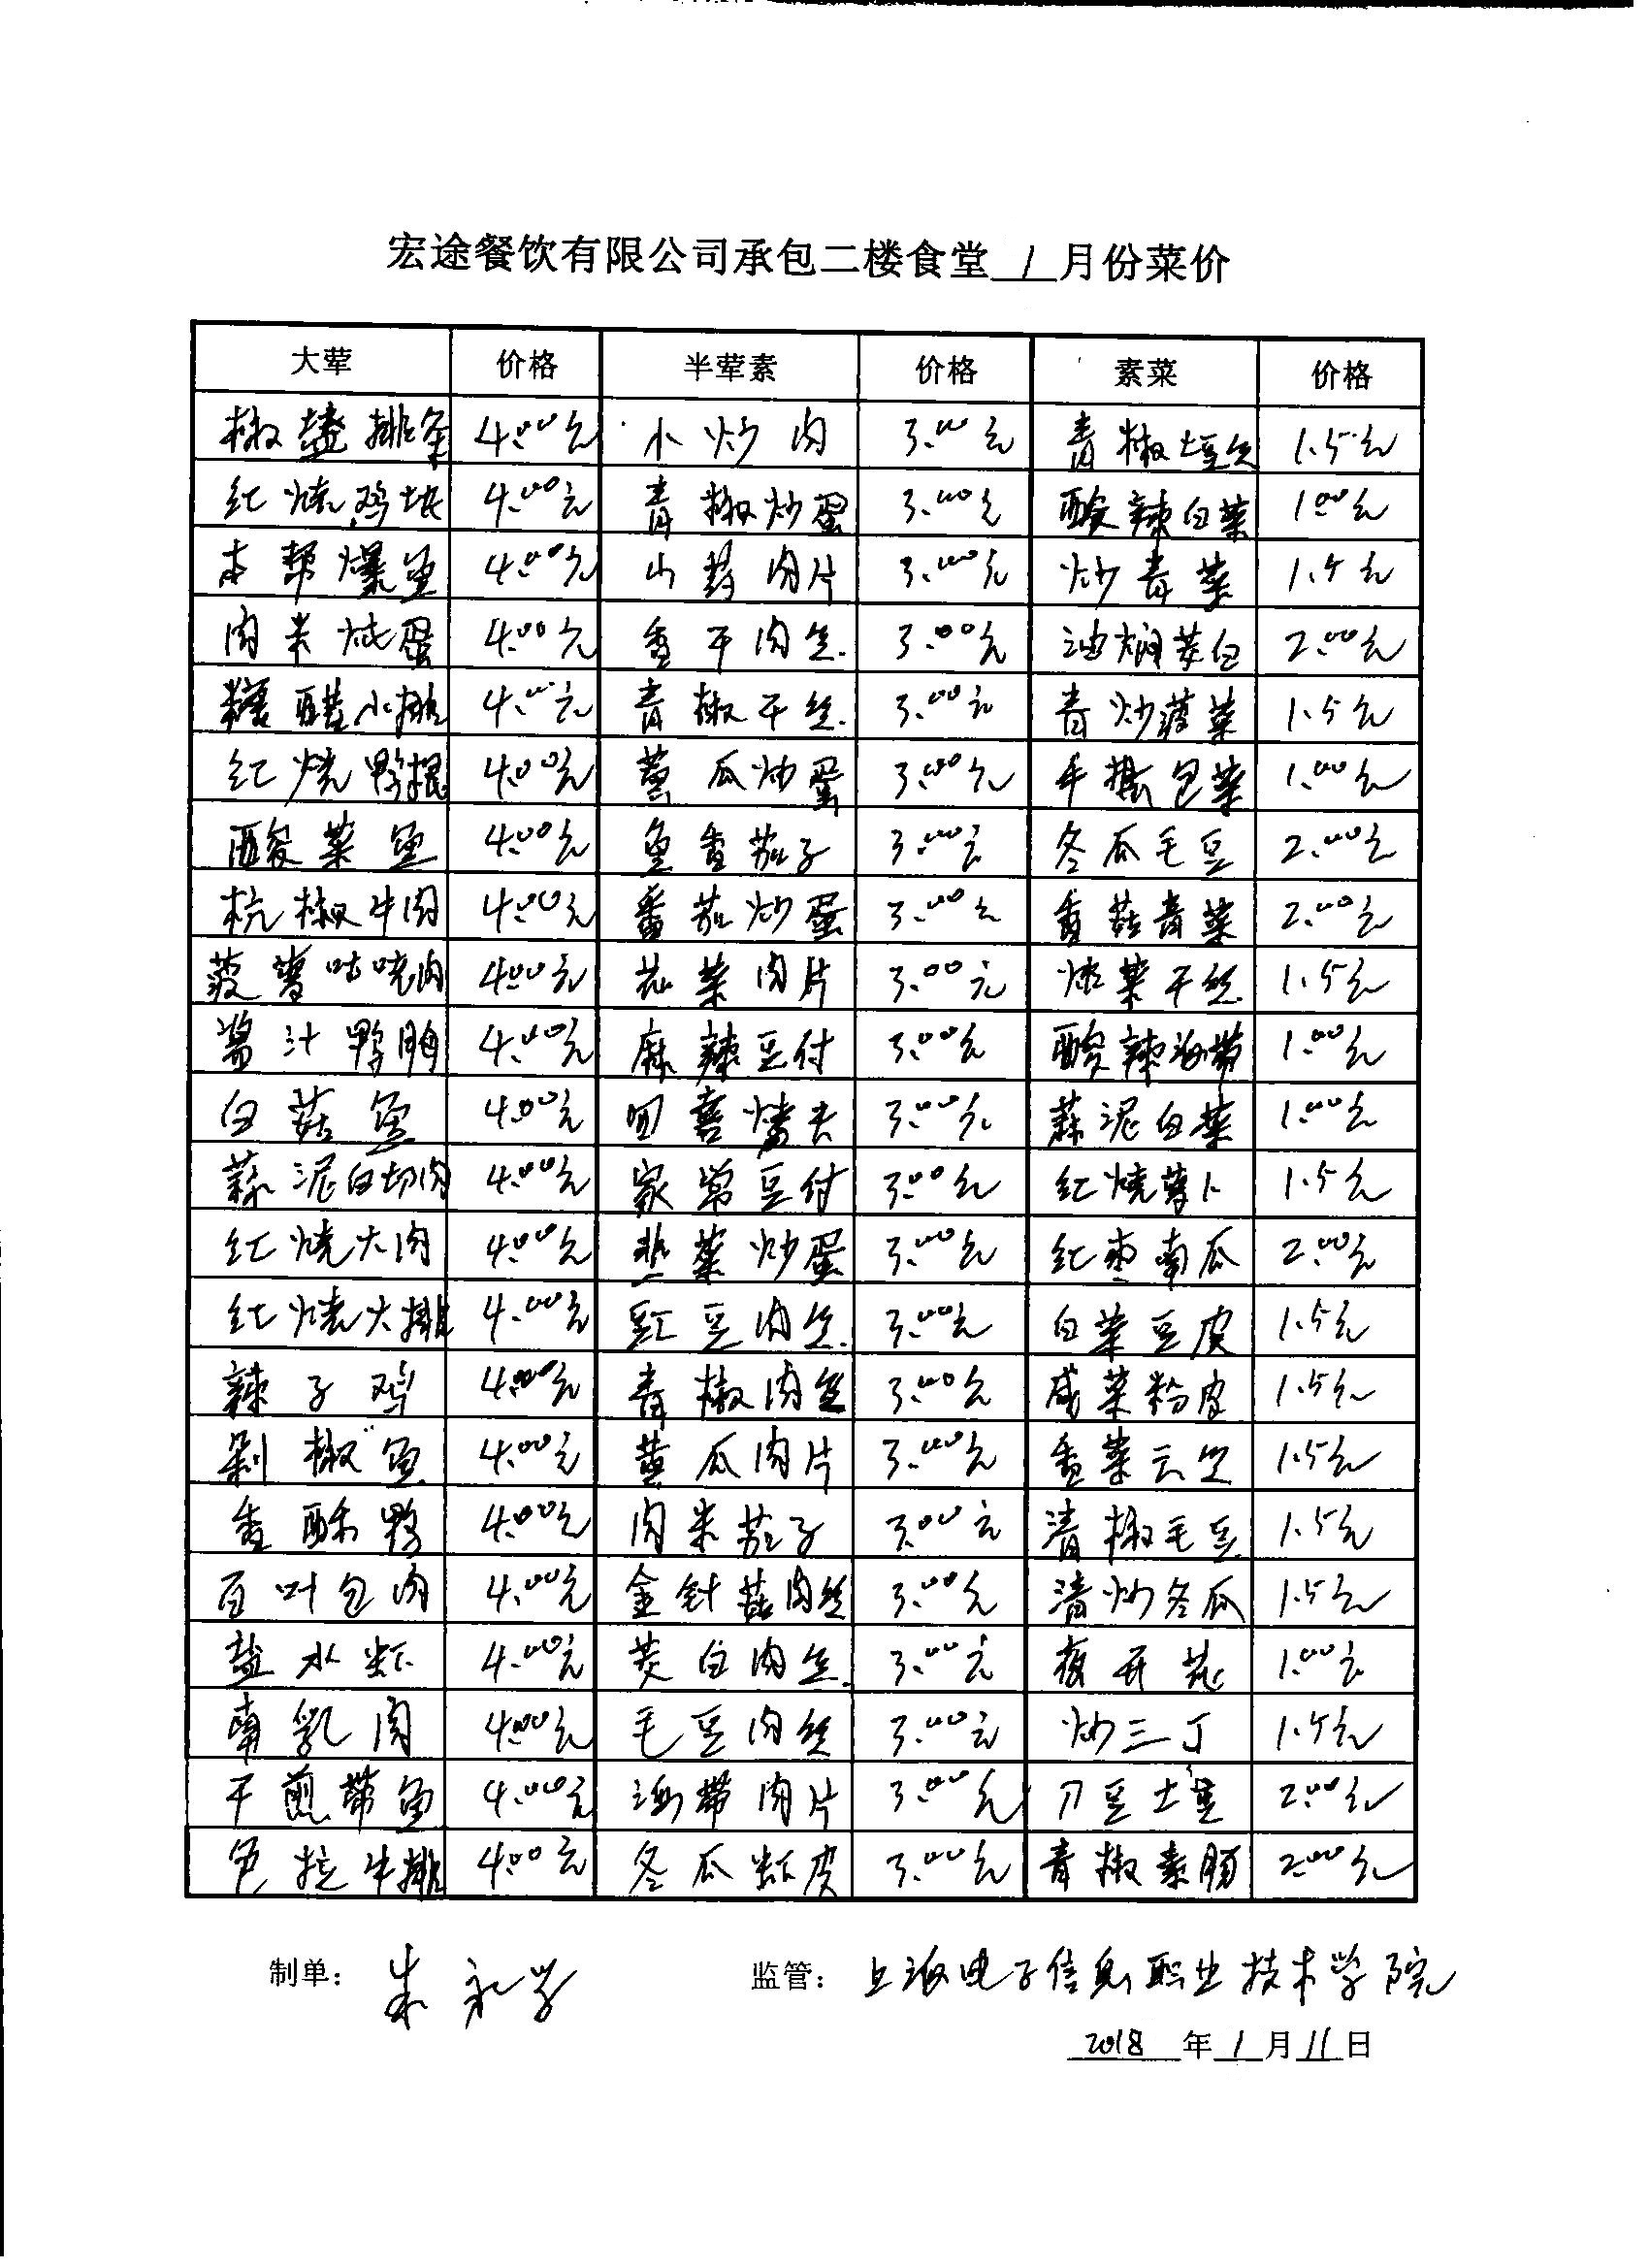 宏途餐饮有限公司承包二楼食堂 1 月份菜价
大荤 价格 半荤素 价格 素菜 价格
椒盐排条 4.00元 小炒肉 3.00元 青椒土豆丝 1.5元
红烧鸡块 4.00元 青椒炒蛋 3.00元 酸辣白菜 1.00元
本帮爆鱼 4.00元 山药肉片 3.00元 炒青菜 1.5元
肉米炖蛋 4.00元 香干肉丝 3.00元 油焖茭白 2.00元
糖醋小排 4.00元 青椒干丝 3.00元 青炒菠菜 1.5元
红烧鸭腿 4.00元 黄瓜炒蛋 3.00元 手撕包菜 1.00元
酸菜鱼 4.00元 鱼香茄子 3.00元 冬瓜毛豆 2.00元
杭椒牛肉 4.00元 番茄炒蛋 3.00元 香菇青菜 2.00元
菠萝咕咾肉 4.00元 花菜肉片 3.00元 干丝 1.5元
酱汁鸭胸 4.00元 麻辣豆付 3.00元 酸辣海带 1.00元
白菇鱼 4.00元 四喜烤夫 3.00元 蒜泥白菜 1.00元
蒜泥白切肉 4.00元 家常豆付 3.00元 红烧萝卜 1.5元
红烧大肉 4.00元 韭菜炒蛋 3.00元 红枣南瓜 2.00元
红烧大排 4.00元 豇豆肉丝 3.00元 白菜豆皮 1.5元
辣子鸡 4.00元 青椒肉丝 3.00元 咸菜粉皮 1.5元
剁椒鱼 4.00元 黄瓜肉片 3.00元 香菜云丝 1.5元
香酥鸭 4.00元 肉米茄子 3.00元 清椒毛豆 1.5元
百叶包肉 4.00元 金针菇肉丝 3.00元 清炒冬瓜 1.5元
盐水虾 4.00元 茭白肉丝 3.00元 花 1.00元
南乳肉 4.00元 毛豆肉丝 3.00元 炒三丁 1.5元
干煎带鱼 4.00元 海带肉片 3.00元 刀豆土豆 2.00元
色拉牛排 4.00元 冬瓜虾皮 3.00元 青椒素肠 2.00元
制单： 朱永学 监管： 上海电子信息职业技术学院
2018 年 1 月 11 日